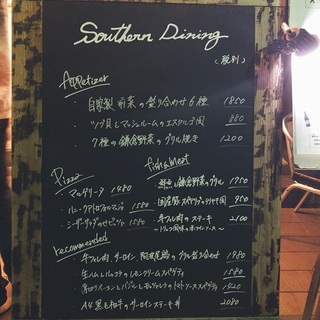 Southern Dining
(税別)
Appetizer
自家製 前菜の盛り合わせ 6種 1850
ツブ貝とマッシュルームのエスカルゴ風 880
7種の鎌倉野菜のグリル焼き 1200
Pizza
マルゲリータ 1480
1580
シーザーサラダのせピッツァ 1580
fish&meat
鎌倉野菜のグリル 1750
950
牛フィレ肉のステーキ 2100
recommended
牛フィレ肉、サーロイン、 グリル盛り合わせ 1980
生ハムとルッコラのレモンクリームスパゲティ 1580
トマトソーススパゲティ 1820
A4黒毛和牛のサーロインステーキ 2080